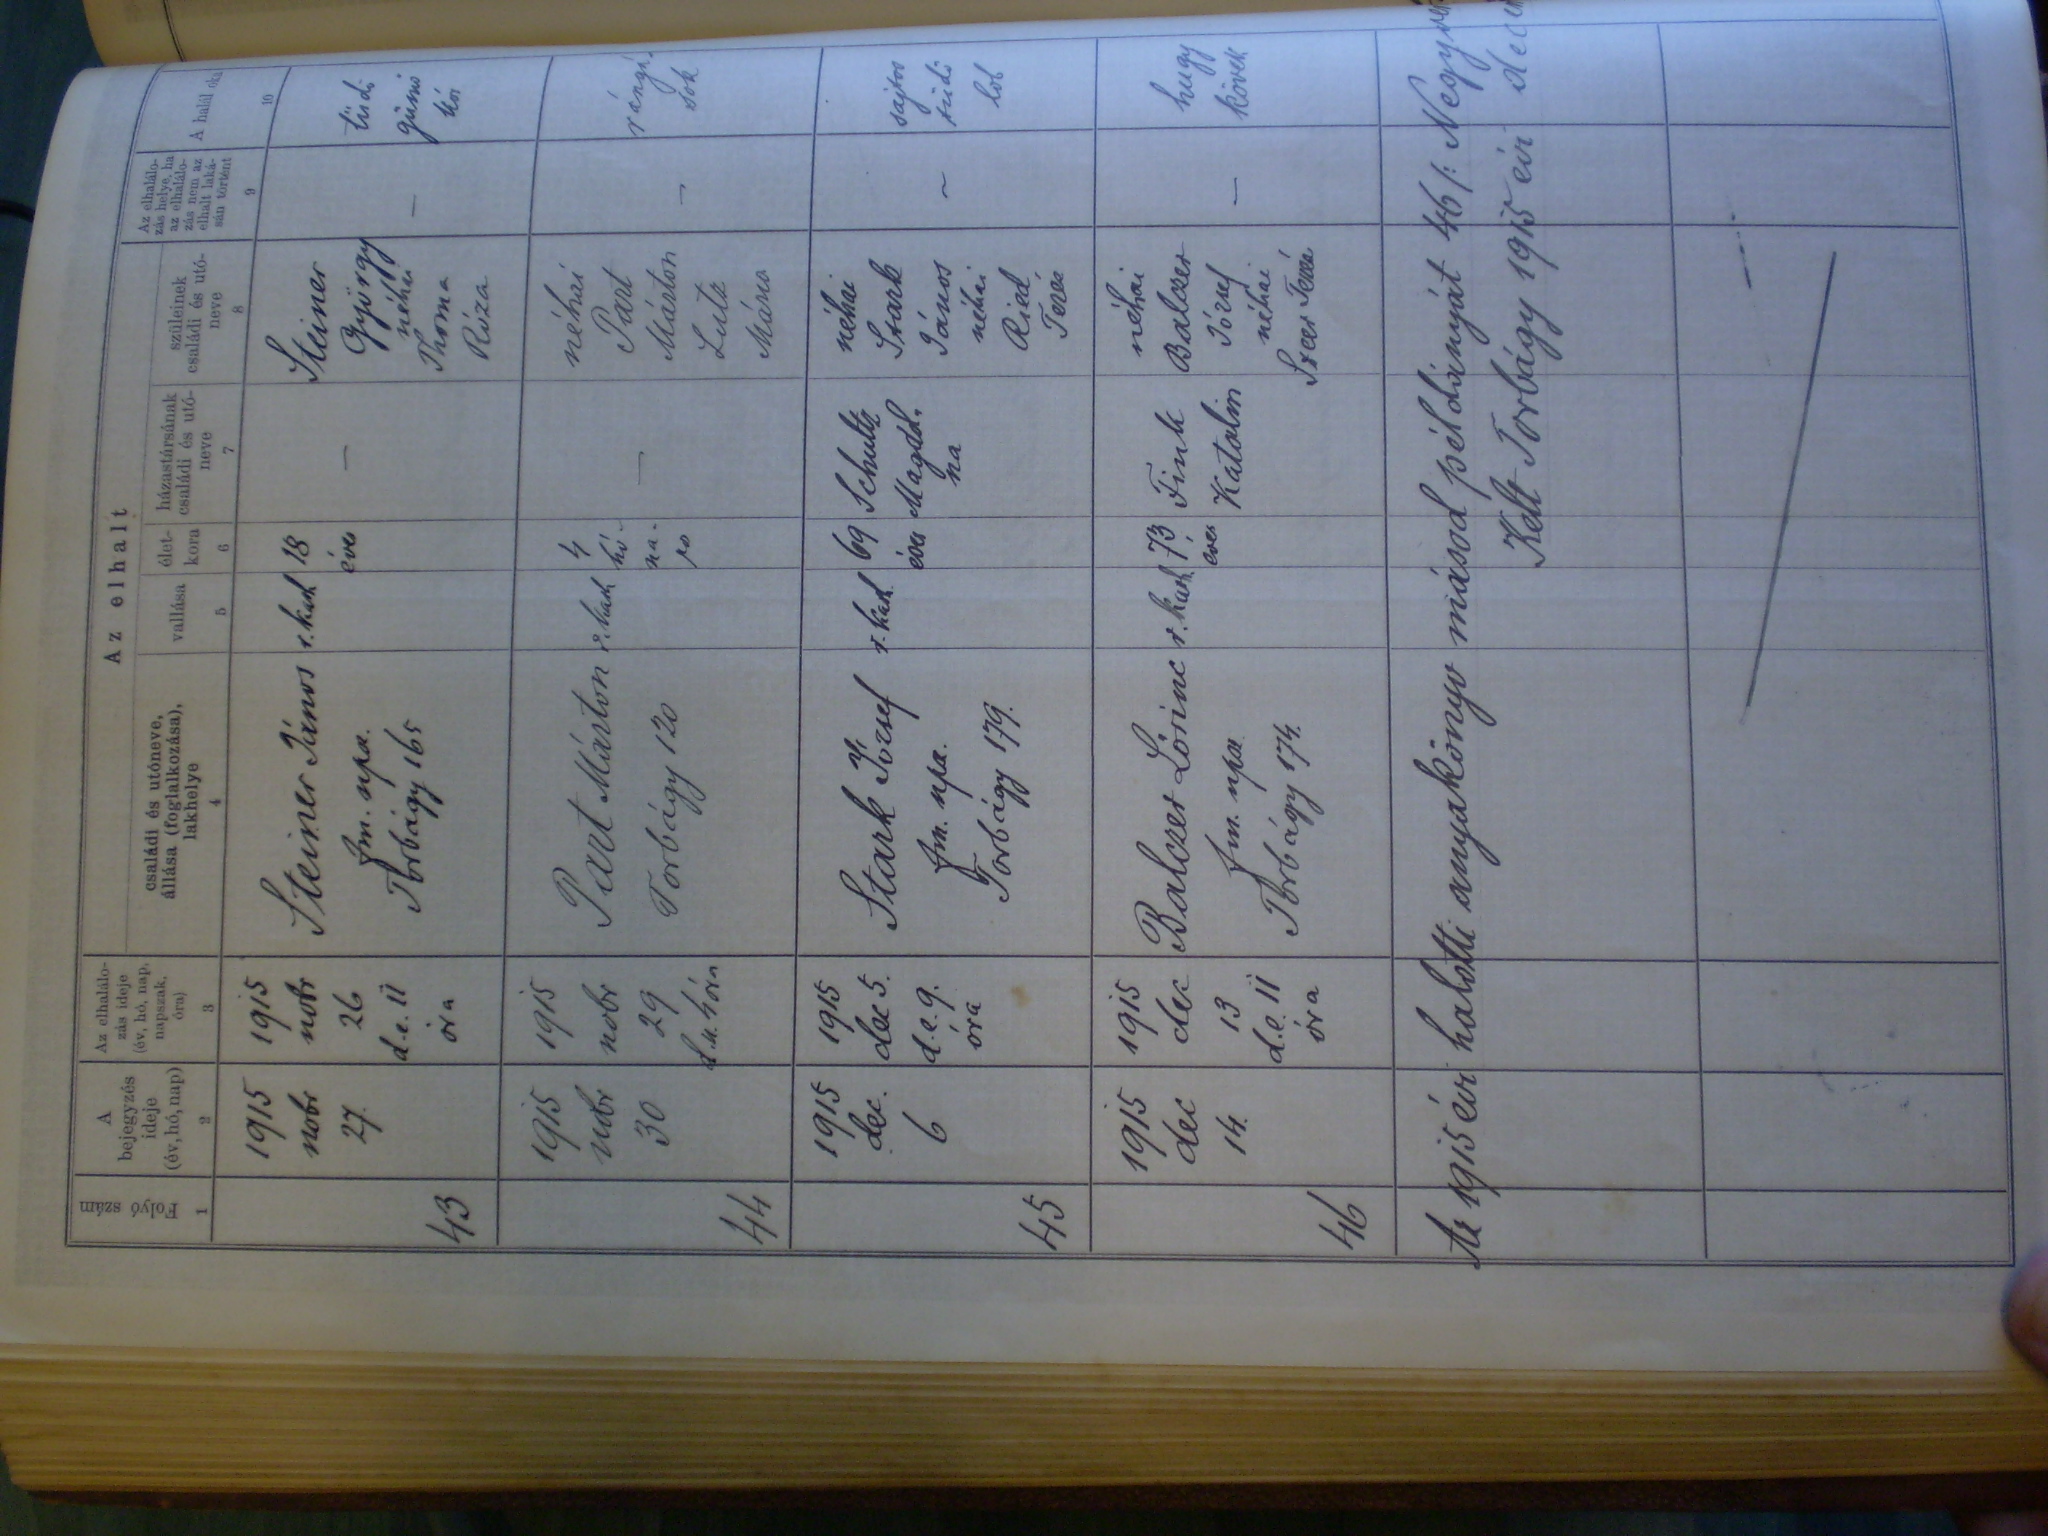 Az elhalt
Folyó szám
A bejegyzés ideje (év, hó, nap)
Az elhalálo-
zás ideje
(év, hó, nap,
napszak,
óra)
családi és utóneve,
állása (foglalkozása),
lakhelye
vallása
élet-
kora
házastársának
családi és utó-
neve
szüleinek
családi és utó-
neve
Az elhalálo-
zás helye, ha
az elhalálo-
zás nem az
elhalt laká-
sán történt
A halál oka
1 2 3 4 5 6 7 8 9 10
43
1915
nobr
27.
1915
nobr
26
d.e. 11
óra
Steiner János
fm. npsz.
Torbágy 165
r. kath
18
éves
—
Steiner
György
néhai
Thoma
Róza
—
tüdő
gümő
kór
44
1915
nobr
30
1915
nobr
29
d.u. 4 óra
Part Márton
Torbágy 120
r. kath
4
hó-
na-
po
—
néhai
Part
Márton
Lutz
Mária
—
rángá
sok
45
1915
dec.
6
1915
dec 5.
d.e. 9.
óra
Stark József
fm. npsz.
Torbágy 179.
r. kath
69
éves
Schultz
Magdol.
na
néhai
Stark
János
néhai
Ried
Teréz
~
sajtos
tüdő
lob
46
1915
dec
14.
1915
dec
13
d.e. 11
óra
Balczer Lőrinc
fm. npsz.
Torbágy 174.
r. kath
73
éves
Fink
Katalin
néhai
Balczer
József
néhai
Teréz
—
hugy
kövek
Az 1915 évi halotti anyakönyv másod példányát 46 /:
Kelt Torbágy 1915 évi